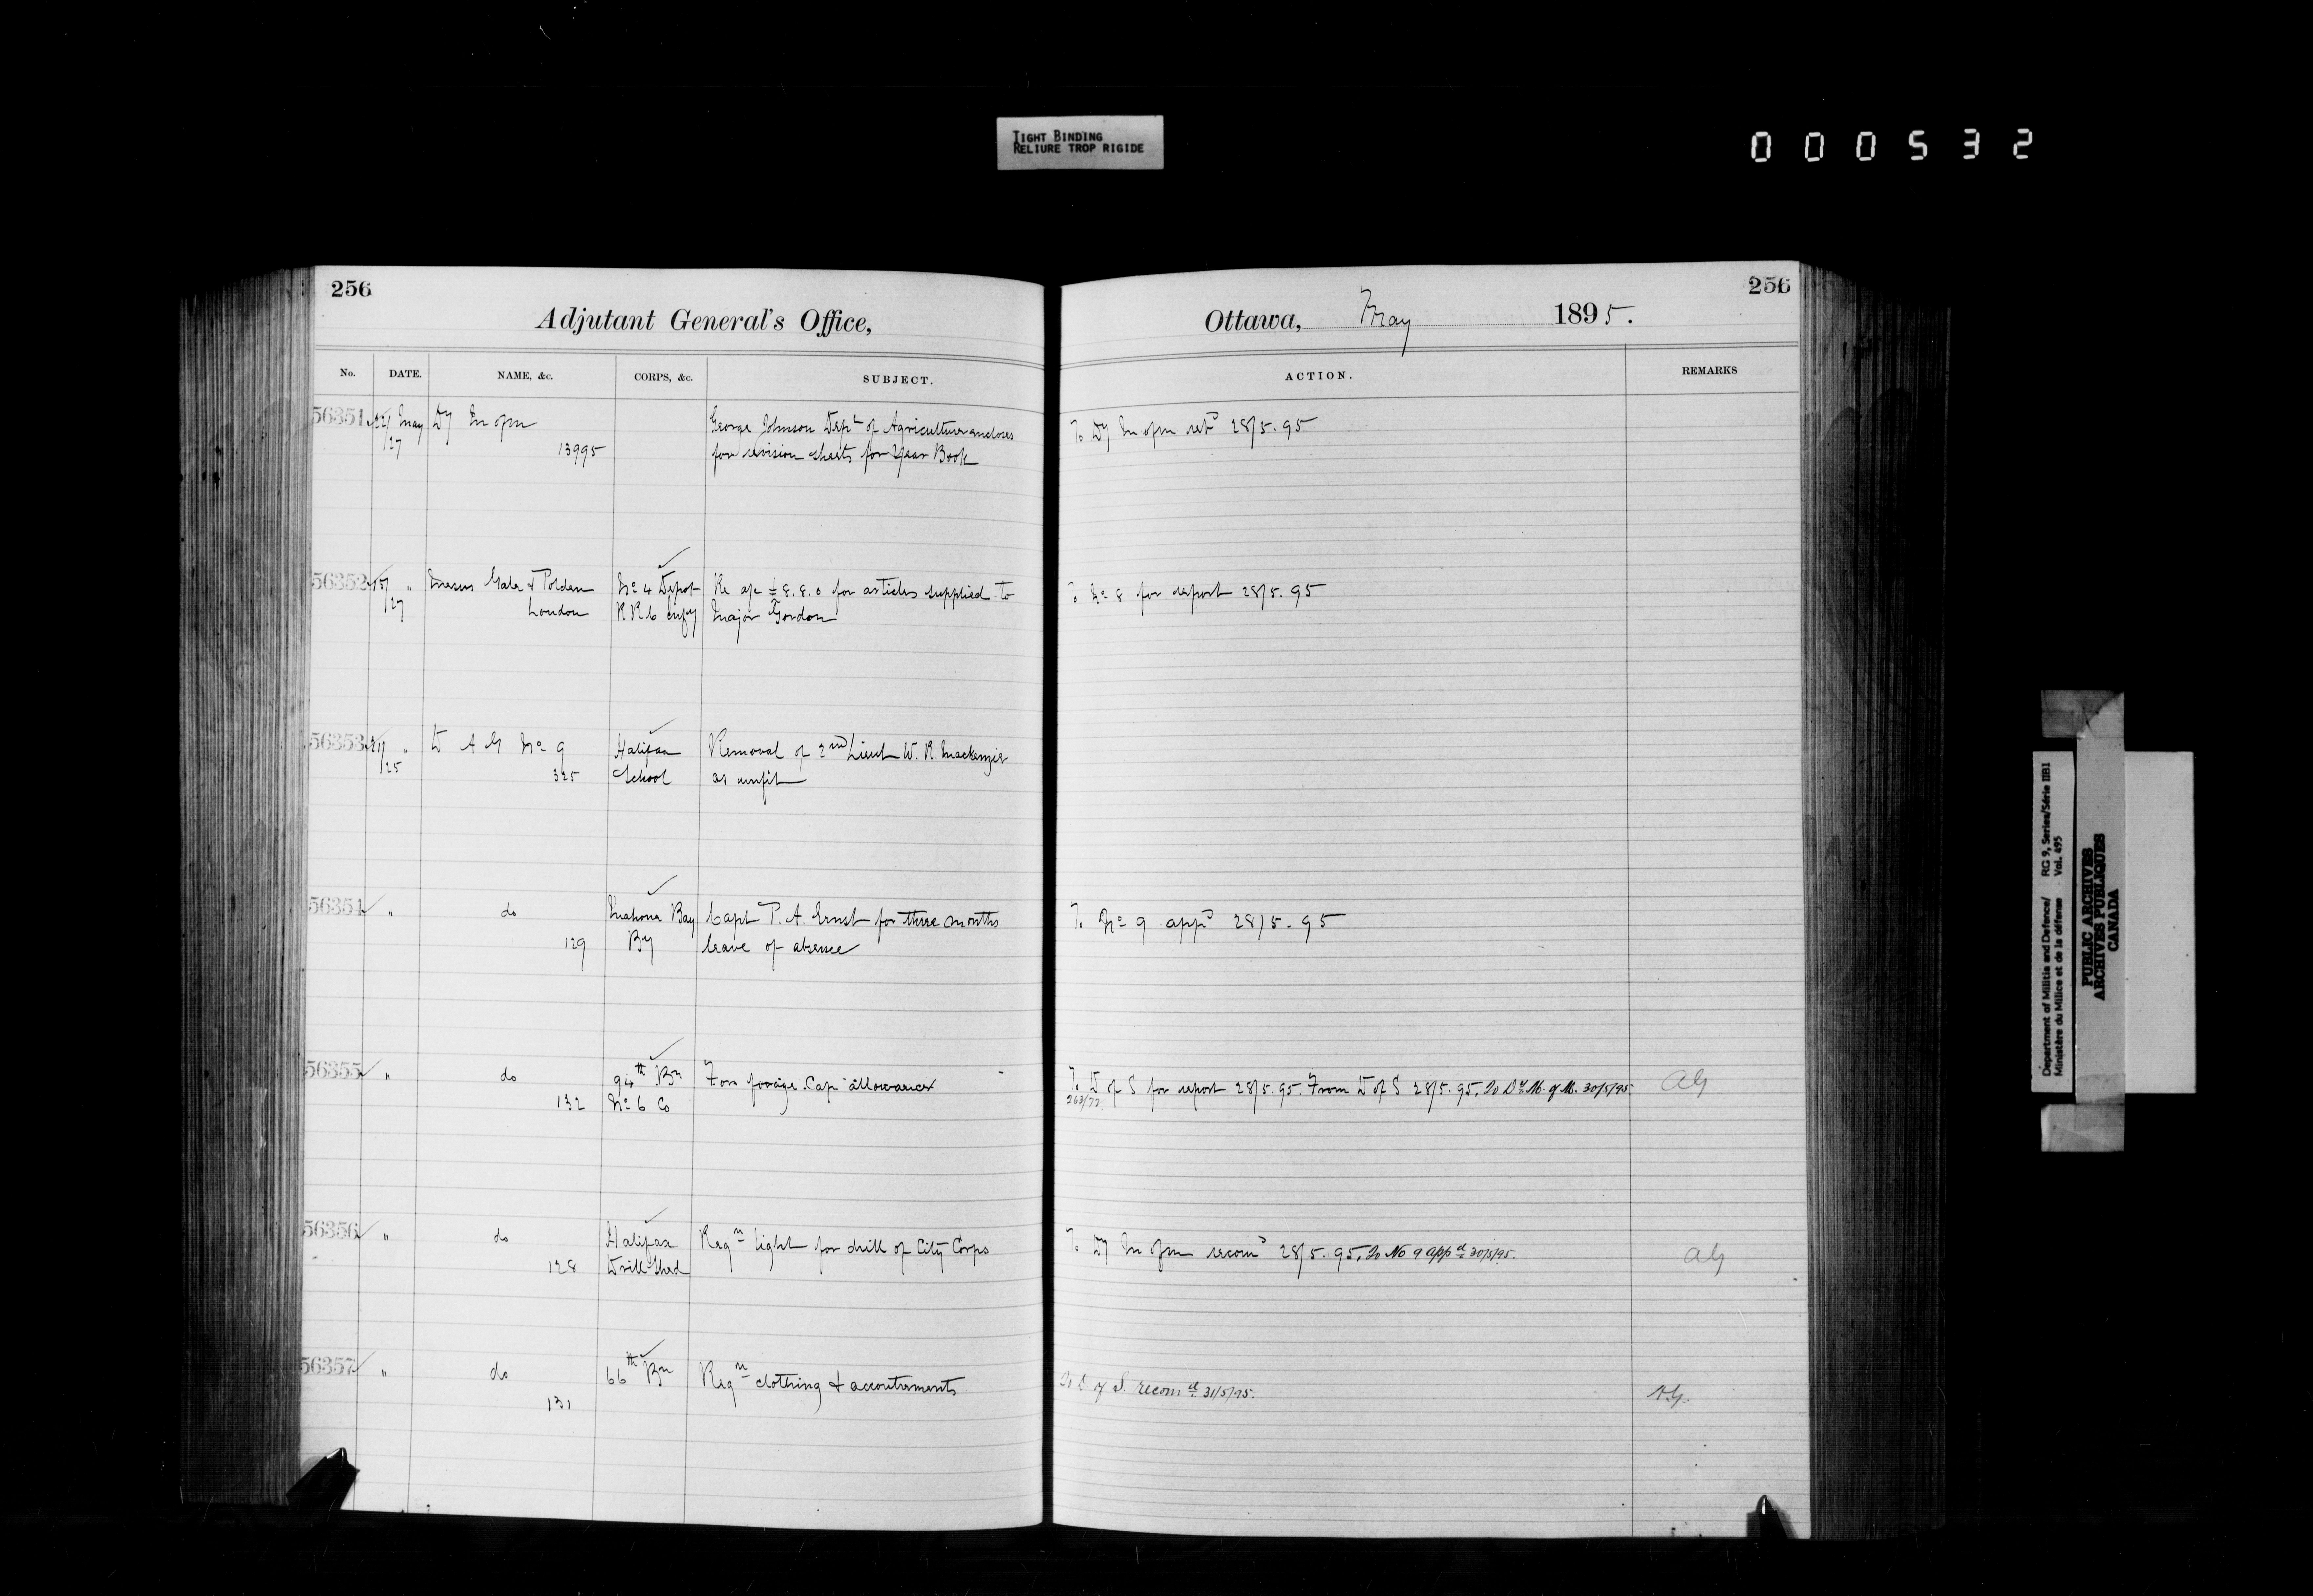 TIGHT BINDING
RELIURE TROP RIGIDE
000532
256
Adjutant General's Office,
No. DATE. NAME, &c. CORPS, &c. SUBJECT.
56351 22/27 May Dy M of M 13995 George Johnson Dept of Agriculture encloses
for revision sheets for Year Book
56352 15/27 " Messrs Gale & Polden No 4 Depot Re a/c £8.8.0 for articles supplied to
London RRC Infy Major Gordon
56353 21/25 " D A G No 9 Halifax Removal of 2nd Lieut W. R. Mackenzie
325 School as unfit
56354 " do Mahone Bay Capt P. A. Ernst for three months
129 By leave of absence
56355 " do 94th Bn For forage. Cap allowances
132 No 6 Co
56356 " do Halifax Reqn light for drill of City Corps
128 Drill Shed
56357 " do 66th Bn Reqn clothing & accoutrements
131
256
Ottawa, May 1895.
ACTION. REMARKS
To Dy M of M retd 28/5.95
To No 8 for report 28/5.95
To No 9 appd 28/5.95
To D of S for report 28/5.95. From D of S 28/5.95. To Dy M. of M. 30/5/95 AG
263/72
To Dy M of M recomd 28/5.95. To No 9 appd 30/5/95. AG
To D of S. recomd 31/5/95. AG.
Department of Militia and Defence/ RG 9, Series/Série IIB1
Ministère du Milice et de la défense Vol. 495
PUBLIC ARCHIVES
ARCHIVES PUBLIQUES
CANADA